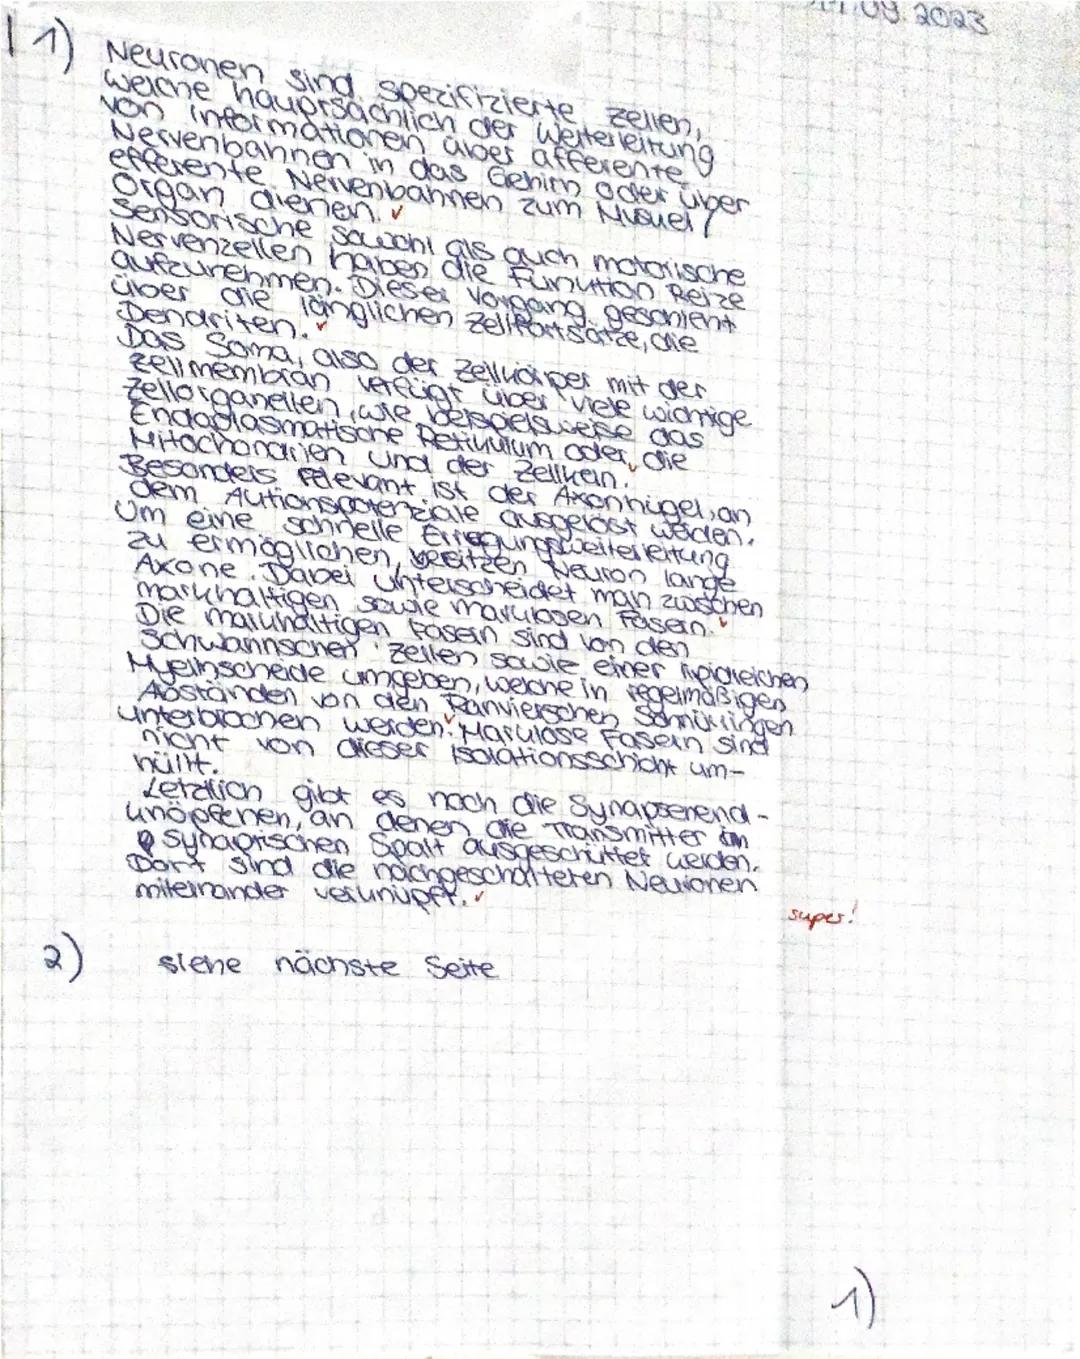 09.2023
1)
Neuronen sind spezifizierte Zellen,
welche hauptsächlich der Weiterleitung
von Informationen über afferente
Nervenbahnen in das Gehirn oder über
efferente Nervenbahnen zum Muskel/
Organ dienen. ✓
Sensorische sowohl als auch motorische
Nervenzellen haben die Funktion Reize
aufzunehmen. Dieser Vorgang geschieht
über die länglichen Zellfortsätze, die
Dendriten. ✓
Das Soma, also der Zellkörper mit der
Zellmembran verfügt über viele wichtige
Zellorganellen, wie beispielsweise das
Endoplasmatische Retikulum oder die
Mitochondrien und der Zellkern. ✓
Besonders relevant ist der Axonhügel, an
dem Aktionspotenziale ausgelöst werden.
Um eine schnelle Erregungsweiterleitung
zu ermöglichen, besitzen Neuron lange
Axone. Dabei unterscheidet man zwischen
markhaltigen sowie marklosen Fasern. ✓
Die markhaltigen Fasern sind von den
Schwannschen Zellen sowie einer lipidreichen
Myelinscheide umgeben, welche in regelmäßigen
Abständen von den Ranvierschen Schnürringen
unterbrochen werden. ✓ Marklose Fasern sind
nicht von dieser Isolationsschicht um-
hüllt.
Letztlich gibt es noch die Synapsenend-
knöpfchen, an denen die Transmitter im
synaptischen Spalt ausgeschüttet werden.
Dort sind die nachgeschalteten Neuronen
miteinander verknüpft. ✓
super!
2) siehe nächste Seite
1)